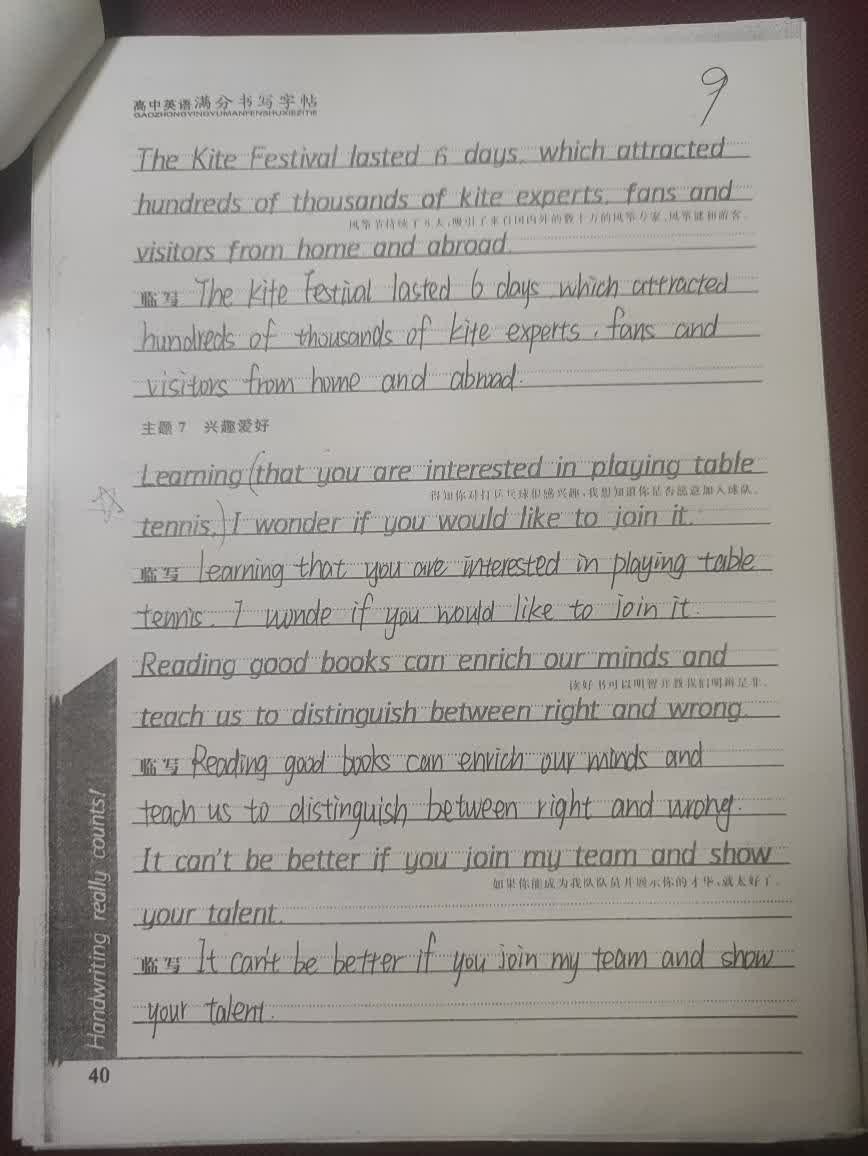 高中英语满分书写字帖
GAOZHONGYINGYUMANFENSHUXIEZITIE
9
The Kite Festival lasted 6 days, which attracted
hundreds of thousands of kite experts, fans and
风筝节持续了6天,吸引了来自国内外的数十万的风筝专家、风筝迷和游客。
visitors from home and abroad.
临写 The kite Festival lasted 6 days, which attracted
hundreds of thousands of kite experts, fans and
visitors from home and abroad.
主题7 兴趣爱好
Learning (that you are interested in playing table
得知你对打乒乓球很感兴趣,我想知道你是否愿意加入球队。
tennis,) I wonder if you would like to join it.
临写 learning that you are interested in playing table
tennis. I wonde if you would like to join it.
Reading good books can enrich our minds and
读好书可以明智并教我们明辨是非。
teach us to distinguish between right and wrong.
临写 Reading good books can enrich our minds and
teach us to distinguish between right and wrong.
It can't be better if you join my team and show
如果你能成为我队队员并展示你的才华,就太好了。
your talent.
临写 It can't be better if you join my team and show
your talent.
Handwriting really counts!
40